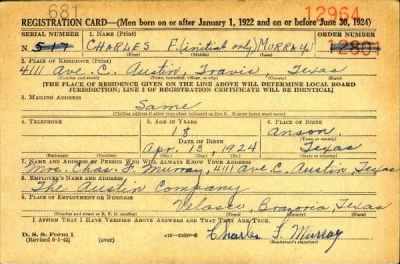 681
12964
REGISTRATION CARD—(Men born on or after January 1, 1922 and on or before June 30, 1924)
SERIAL NUMBER 1. NAME (Print) ORDER NUMBER
N- 517 CHARLES F. (initial only) MURRAY 12801
2. PLACE OF RESIDENCE (Print)
4111 Ave. C. Austin, Travis, Texas
(THE PLACE OF RESIDENCE GIVEN ON THE LINE ABOVE WILL DETERMINE LOCAL BOARD
JURISDICTION; LINE 2 OF REGISTRATION CERTIFICATE WILL BE IDENTICAL)
3. MAILING ADDRESS
Same
4. TELEPHONE 5. AGE IN YEARS 6. PLACE OF BIRTH
18 Anson,
DATE OF BIRTH
Apr. 13, 1924 Texas
7. NAME AND ADDRESS OF PERSON WHO WILL ALWAYS KNOW YOUR ADDRESS
Mrs. Chas. F. Murray, 4111 Ave C. Austin, Texas
8. EMPLOYER'S NAME AND ADDRESS
The Austin Company
9. PLACE OF EMPLOYMENT OR BUSINESS
Velasco, Brazoria, Texas
I AFFIRM THAT I HAVE VERIFIED ABOVE ANSWERS AND THAT THEY ARE TRUE.
D. S. S. Form 1
Charles F. Murray
(Registrant's signature)